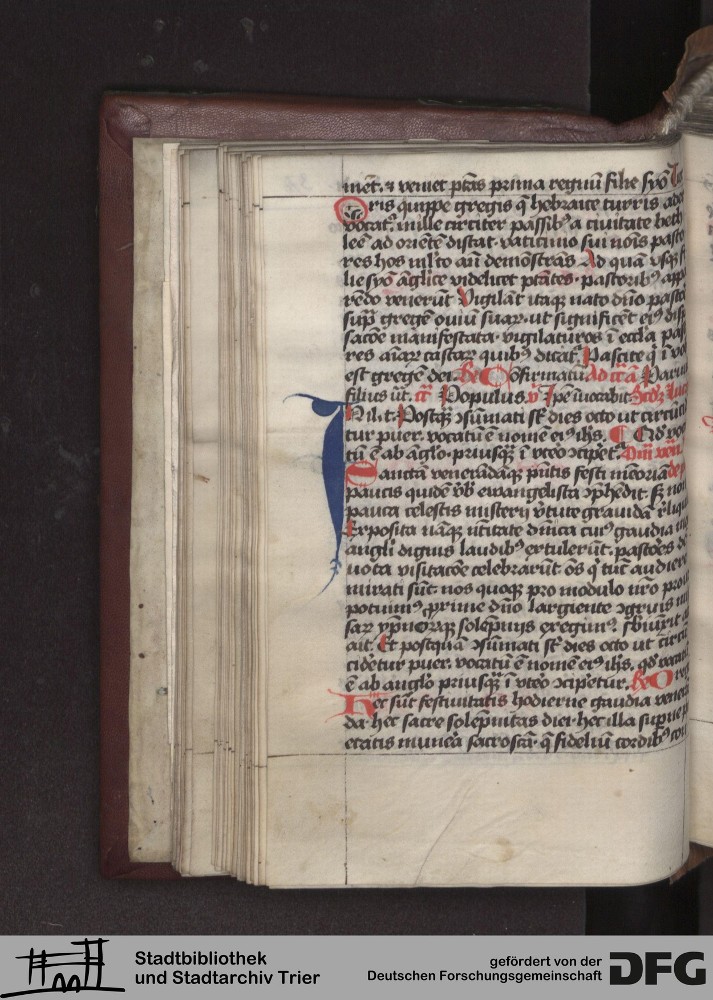 niet. et veniet ptās prima regnū filie syō
Turris quippe gregis q̄ hebraice turris ader
vocat᷒. mille circiter passib᷒ a civitate beth
leē ad oriētē distat. vaticinio sui noīs pasto
res hos mlto an̄ demōstrās Ad quā usq̄ fi
lie syō āglice videlicet ptātes. pastorib᷒ appa
rēdo venerūt Vigilāt itaq̄ nato dn̄o pasto
sup̄ gregē oviū suaꝝ. ut significēt ei᷒ disp
sacōe manifestata. vigilaturos ī eccla pas
res aīaꝝ castaꝝ quib᷒ dicat᷒. Pascite q̄ ī vo
est gregē dei. Be Cōfirmatū Ad
filius ūt. Populus. v̄ Ipē īuocabit
Postq̄ ɔsūmati st̄ dies octo ut circūci
tur puer. vocatū ē nomē ei᷒ ihs. Qd vo
tū ē ab āglo. priusq̄ ī vtēo ɔcipet᷒.
Sanctā venerādāq̄ pn̄tis festi mēoriā
paucis quidē vb̄ ewangelista ɔp̄hēdit. sꝫ non
pauca celestis misterii v̄tute gravidā reliqu
Exposita nāq̄ n̄titate dn̄ica cui᷒ gaudia
angli dignis laudib᷒ extulerūt. pastōes de
uota visitacōe celebrarūt oēs q̄ tūc audiere
mirati sūt. nos quoq̄ pro modulo nr̄o pro
potuim᷒ ꝓxime dn̄o largiente
solēpniis exegim᷒.
ait. Et postquā ɔsūmati st̄ dies octo ut circū
cidētur puer. vocatū ē nomē ei᷒ ihs. qd vocatū
ē ab anglo priusq̄ ī vtēo ɔcipetur.
Hec sūt festivitatis hodierne gaudia venerā
da. hec sacre solēpnitas diei. hec illa sup̄ne p
etatis munera sacroscā. q̄ fideliū cordib᷒
Stadtbibliothek
und Stadtarchiv Trier
gefördert von der
Deutschen Forschungsgemeinschaft
DFG